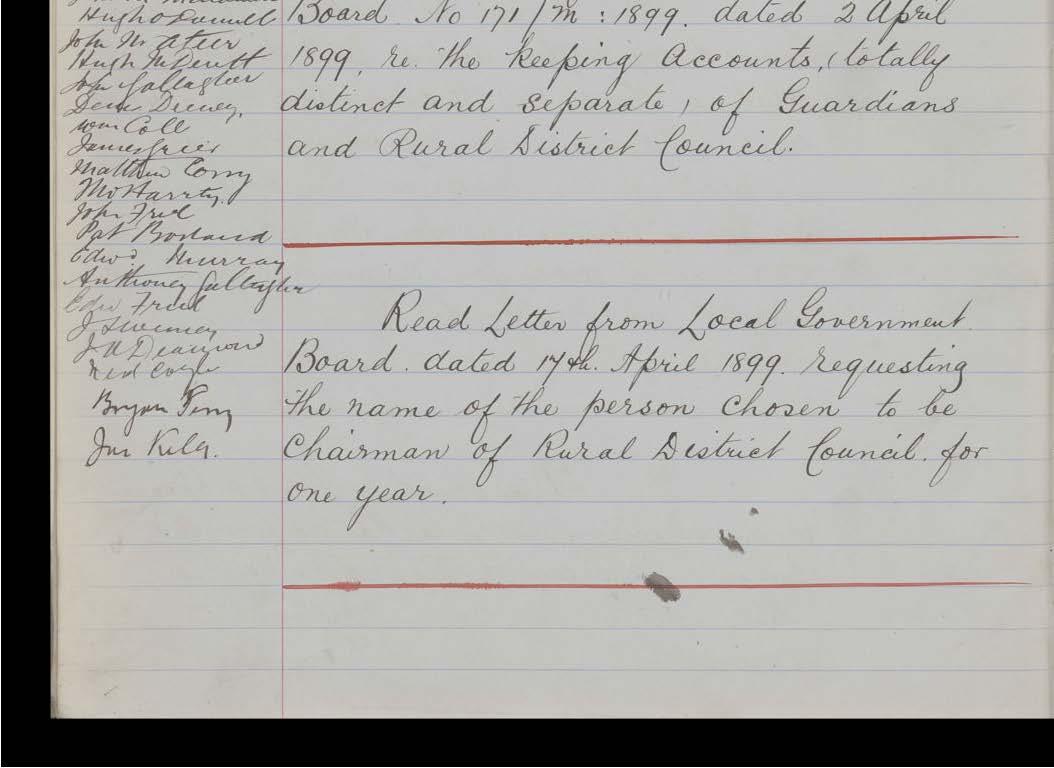 Hugh O'Donnell
John McAteer
Hugh McDevitt
John Gallagher
Denis Deeney,
Wm Coll
James Greer
Matthew Corry
McHarrty.
John Friel
Pat Bonar
Edwd Murray
Anthoney Gallagher
Edw Friel
J Sweeney
J A
Ned Coyle
Bryan
Jno
Board. No 171/M : 1899. dated 2 April
1899, re. the keeping Accounts, (totally
distinct and separate) of Guardians
and Rural District Council.
Read Letter from Local Government
Board. dated 17th. April 1899. requesting
the name of the person chosen to be
Chairman of Rural District Council. for
one year.